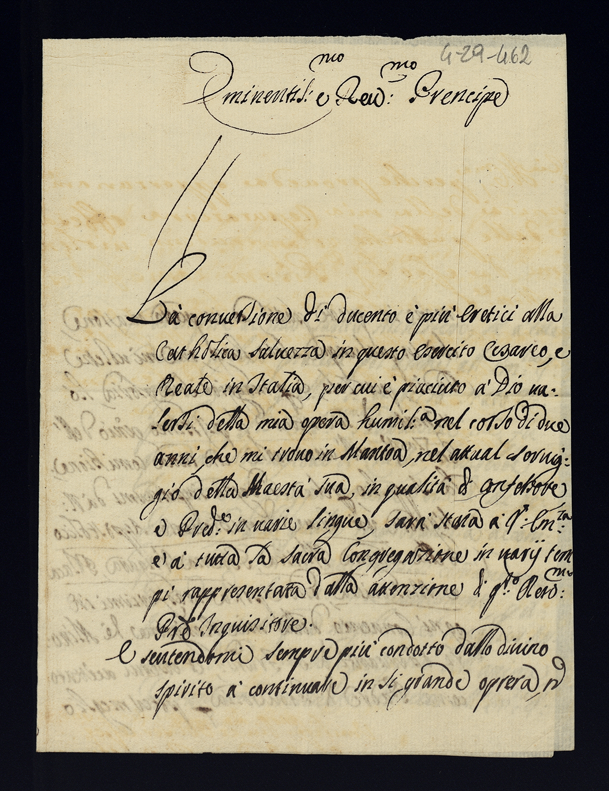 4-29-462
Eminentis:mo e Reu:mo Prencipe
La conuersione di ducento e più eretici alla
Catholica saluezza in questo esercito Cesareo, e
Reale in Italia, per cui è piaciuto à Dio ua-
lersi della mia opera humil.a nel corso di due
anni, che mi trouo in Mantoa, nel attual serui-
gio della Maestà sua, in qualità di Confessore
e Pred.e in uarie lingue, sarà stata à V. Em.za
e à tutta la sacra Congregazione in uarij tem
pi rappresentata dalla attenzione di q.to Reu:mo
Pre Inquisitore.
E sentendomi sempre più condotto dallo diuino
spirito à continuare in sì grande opera, nõ